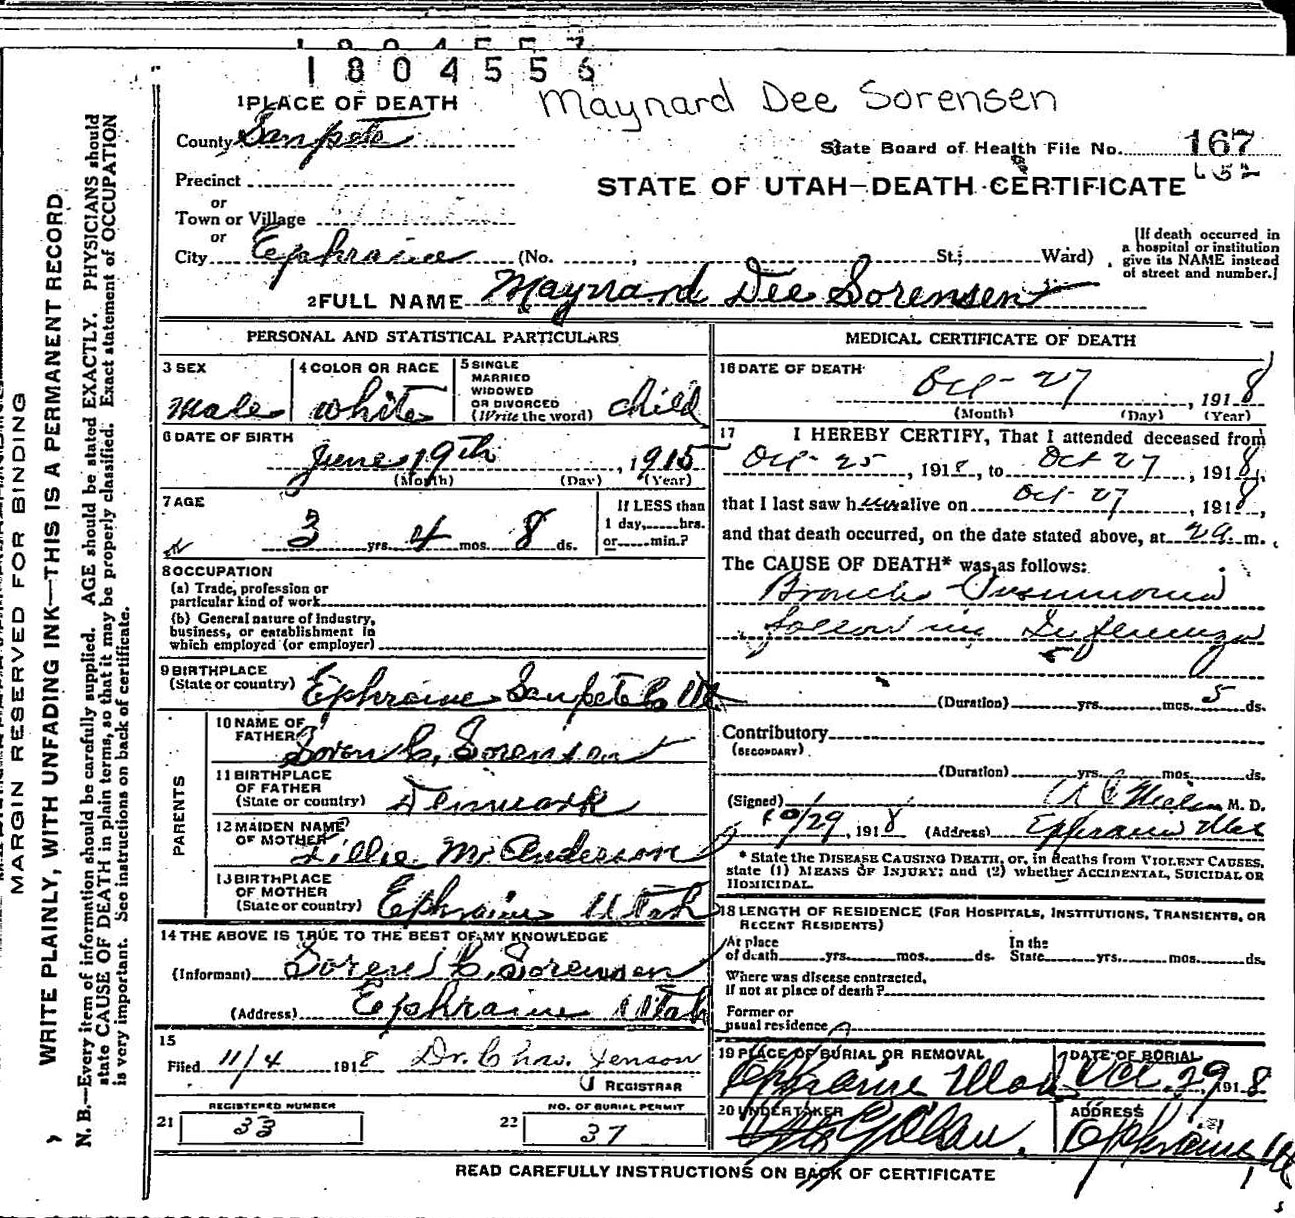 1804556
Maynard Dee Sorensen
1 PLACE OF DEATH
County Sanpete
State Board of Health File No. 167
652
Precinct
STATE OF UTAH—DEATH CERTIFICATE
or
Town or Village
or
City Ephraim (No. , St.; Ward)
[If death occurred in
a hospital or institution
give its NAME instead
of street and number.]
2 FULL NAME Maynard Dee Sorensen
PERSONAL AND STATISTICAL PARTICULARS
3 SEX
Male
4 COLOR OR RACE
white
5 SINGLE
MARRIED
WIDOWED
OR DIVORCED
(Write the word) child
6 DATE OF BIRTH
June 19th, 1915
(Month) (Day) (Year)
7 AGE
3 yrs. 4 mos. 8 ds.
If LESS than
1 day, hrs.
or min.?
8 OCCUPATION
(a) Trade, profession or
particular kind of work
(b) General nature of Industry,
business, or establishment in
which employed (or employer)
9 BIRTHPLACE
(State or country) Ephraim Sanpete Co Ut
PARENTS
10 NAME OF
FATHER Soren C. Sorenson
11 BIRTHPLACE
OF FATHER
(State or country) Denmark
12 MAIDEN NAME
OF MOTHER Lillie M. Anderson
13 BIRTHPLACE
OF MOTHER
(State or country) Ephraim Utah
14 THE ABOVE IS TRUE TO THE BEST OF MY KNOWLEDGE
(Informant) Soren C. Sorensen
(Address) Ephraim Utah
15
Filed 11/4 1918 Dr. Chas. Jenson
REGISTRAR
REGISTERED NUMBER
21 33
NO. OF BURIAL PERMIT
22 37
MEDICAL CERTIFICATE OF DEATH
16 DATE OF DEATH
Oct- 27, 1918
(Month) (Day) (Year)
17 I HEREBY CERTIFY, That I attended deceased from
Oct- 25, 1918, to Oct 27, 1918,
that I last saw h alive on Oct- 27, 1918,
and that death occurred, on the date stated above, at 2 a. m.
The CAUSE OF DEATH* was as follows:
Broncho Pneumonia
following Influenza
(Duration) yrs. mos. 5 ds.
Contributory
(SECONDARY)
(Duration) yrs. mos. ds.
(Signed) M. D.
10/29, 1918 (Address) Ephraim Utah
* State the DISEASE CAUSING DEATH, or, in deaths from VIOLENT CAUSES,
state (1) MEANS OF INJURY; and (2) whether ACCIDENTAL, SUICIDAL OR
HOMICIDAL.
18 LENGTH OF RESIDENCE (FOR HOSPITALS, INSTITUTIONS, TRANSIENTS, OR
RECENT RESIDENTS)
At place
of death yrs. mos. ds.
In the
State yrs. mos. ds.
Where was disease contracted,
If not at place of death?
Former or
usual residence
19 PLACE OF BURIAL OR REMOVAL
Ephraim Utah
DATE OF BURIAL
Oct. 29, 1918
20 UNDERTAKER
ADDRESS
Ephraim, Ut
READ CAREFULLY INSTRUCTIONS ON BACK OF CERTIFICATE
MARGIN RESERVED FOR BINDING
WRITE PLAINLY, WITH UNFADING INK—THIS IS A PERMANENT RECORD
N. B.—Every item of information should be carefully supplied. AGE should be stated EXACTLY. PHYSICIANS should
state CAUSE OF DEATH in plain terms, so that it may be properly classified. Exact statement of OCCUPATION
is very important. See instructions on back of certificate.